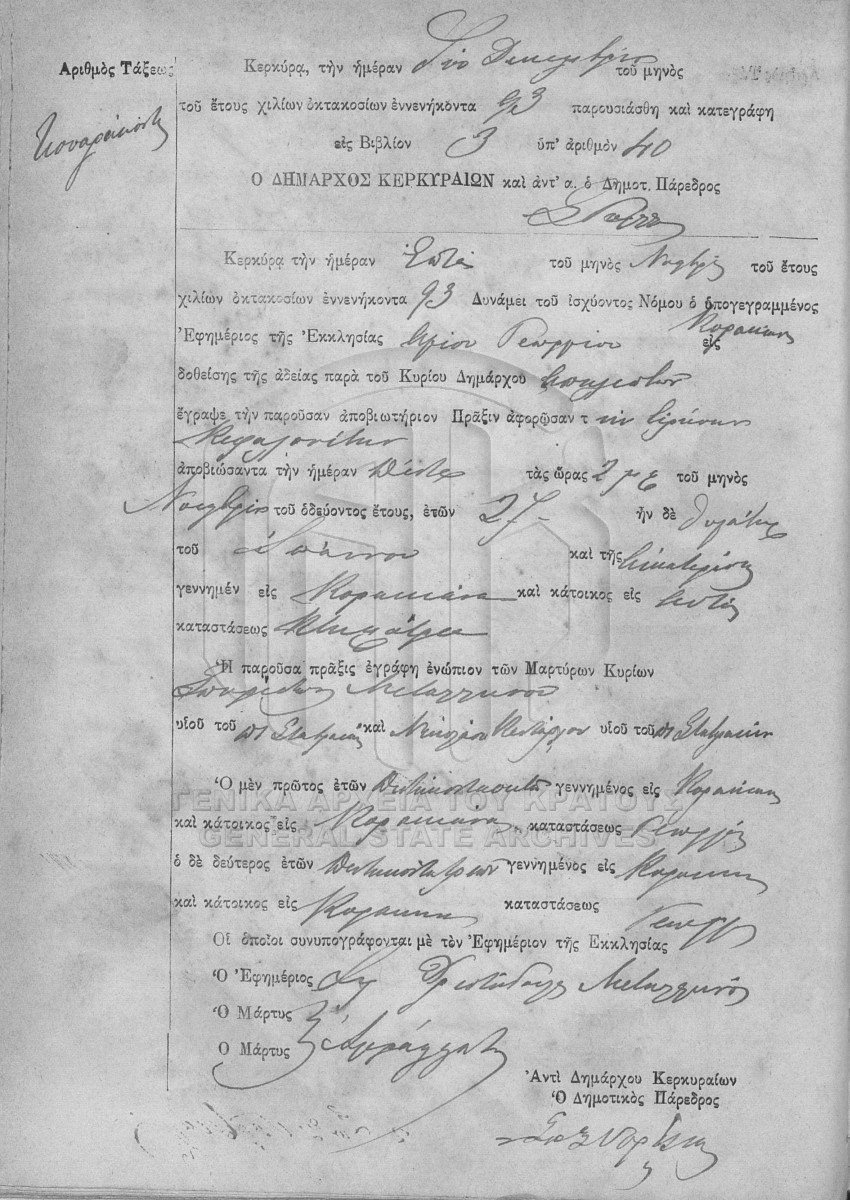 Ἀριθμὸς Τάξεως
Κερκύρᾳ, τὴν ἡμέραν δύο Δεκεμβρίου τοῦ μηνὸς
τοῦ ἔτους χιλίων ὀκτακοσίων ἐννενήκοντα 93 παρουσιάσθη καὶ κατεγράφη
εἰς Βιβλίον 3 ὑπ' ἀριθμὸν 40
Ὁ ΔΗΜΑΡΧΟΣ ΚΕΡΚΥΡΑΙΩΝ καὶ ἀντ' α. ὁ Δημοτ. Πάρεδρος
Κερκύρᾳ τὴν ἡμέραν Ἑπτὰ τοῦ μηνὸς Νοεμβρίου τοῦ ἔτους
χιλίων ὀκτακοσίων ἐννενήκοντα 93 Δυνάμει τοῦ ἰσχύοντος Νόμου ὁ ὑπογεγραμμένος
Ἐφημέριος τῆς Ἐκκλησίας Ἁγίου Γεωργίου εἰς Κορακιάνα
δοθείσης τῆς ἀδείας παρὰ τοῦ Κυρίου Δημάρχου
ἔγραψε τὴν παροῦσαν ἀποβιωτήριον Πρᾶξιν ἀφορῶσαν τ ὴν Εἰρήνην
Κεφαλονίτην
ἀποβιώσαντα τὴν ἡμέραν πέντε τὰς ὥρας 2 μ μ τοῦ μηνὸς
Νοεμβρίου τοῦ ὁδεύοντος ἔτους, ἐτῶν 27 ἦν δὲ θυγάτηρ
τοῦ Ἰωάννου καὶ τῆς Αἰκατερίνης
γεννημέν εἰς Κορακιάνα καὶ κάτοικος εἰς αὐτό
καταστάσεως κτηματία
Ἡ παροῦσα πρᾶξις ἐγράφη ἐνώπιον τῶν Μαρτύρων Κυρίων
Σπυρίδωνος Μεταλληνοῦ
υἱοῦ τοῦ ποτὲ Σταματίου καὶ Νικολάου υἱοῦ τοῦ ποτὲ Σταματίου
Ὁ μὲν πρῶτος ἐτῶν πεντηκονταοκτὼ γεννημένος εἰς Κορακιάνα
καὶ κάτοικος εἰς Κορακιάνα, καταστάσεως Γεωργὸς
ὁ δὲ δεύτερος ἐτῶν πεντηκοντατριῶν γεννημένος εἰς Κορακιάνα
καὶ κάτοικος εἰς Κορακιάνα καταστάσεως Γεωργὸς
Οἱ ὁποῖοι συνυπογράφονται μὲ τὸν Ἐφημέριον τῆς Ἐκκλησίας
Ὁ Ἐφημέριος Χριστόδουλος Μεταλληνὸς
Ὁ Μάρτυς
Ὁ Μάρτυς ἀγράμματοι
Ἀντὶ Δημάρχου Κερκυραίων
Ὁ Δημοτικὸς Πάρεδρος
ΓΕΝΙΚΑ ΑΡΧΕΙΑ ΤΟΥ ΚΡΑΤΟΥΣ
GENERAL STATE ARCHIVES